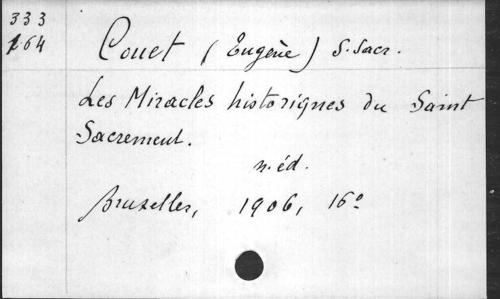 333
164
Couet (Eugène) S. Sacr.
Les Miracles historiques du Saint
Sacrement.
n. éd.
Bruxelles, 1906, 16º